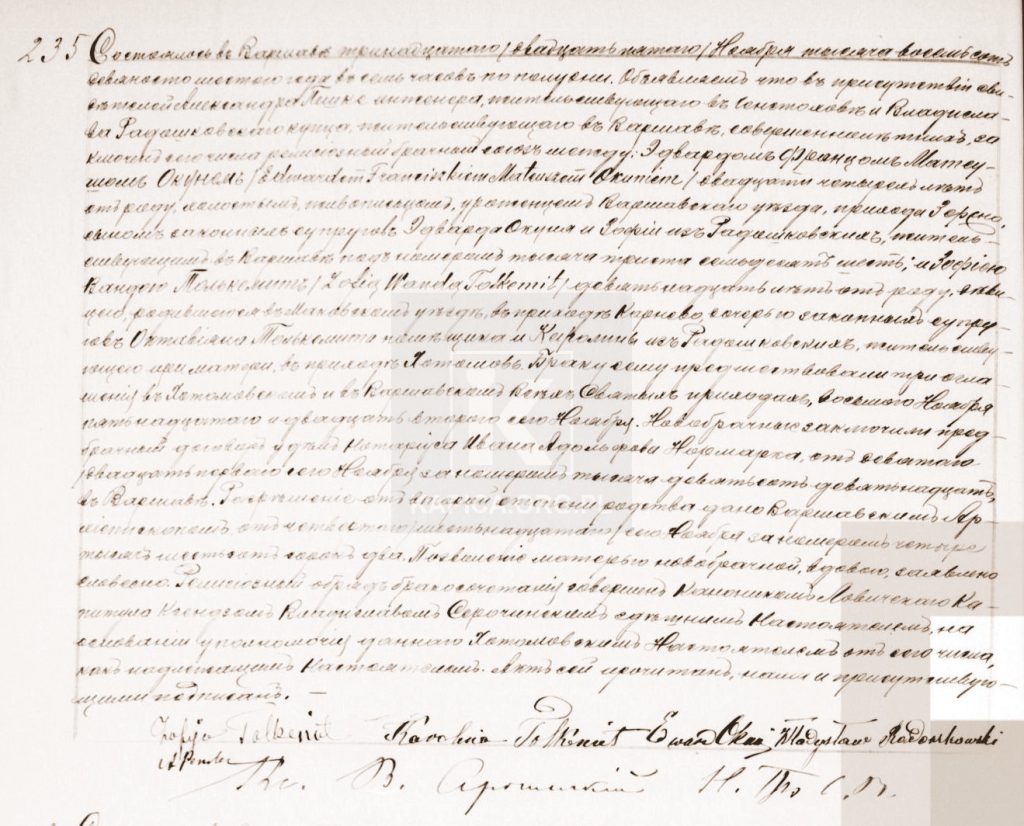 235 Состоялось въ Варшавѣ тринадцатаго /двадцать пятаго/ Ноября тысяча восемь сотъ
девяносто шестого года въ семь часовъ по полудни. Объявляемъ что въ присутствіи сви-
дѣтелей Александра Пешке инженера, жительствующаго въ Ченстоховѣ и Владисла-
ва Радошковскаго купца, жительствующаго въ Варшавѣ, совершеннолѣтнихъ, за
ключенъ сего числа религіозный брачный союзъ между: Эдвардомъ Францомъ Матеу-
шомъ Окунемъ /Edwardem Franciszkiem Mateuszem Okuniem/ двадцати четырехъ лѣтъ
отъ роду, холостымъ, живописцемъ, уроженцемъ Варшавскаго уѣзда, прихода
сыномъ законныхъ супруговъ Эдварда Окуня и Зофіи изъ Радошковскихъ, житель-
ствующимъ въ Варшавѣ подъ номеромъ тысяча триста семьдесятъ шесть; и Зофіею
Вандою Толькемитъ /Zofią Wandą Tolkemit/ девятнадцать лѣтъ отъ роду, дѣви-
цею, родившеюся въ Маковскомъ уѣздѣ, въ приходѣ Карнево, дочерью законныхъ супру-
говъ Октавіана Толькемита помѣщика и Каролины изъ Радошковскихъ, жительству-
ющею при матери, въ приходѣ Хотомовъ. Браку сему предшествовали три огла-
шенія въ Хотомовскомъ и въ Варшавскомъ Всѣхъ Святыхъ приходахъ, восьмого Ноября
пятнадцатаго и двадцать второго сего Ноября. Новобрачные заключили пред-
брачный договоръ у Нотаріуса Ивана Адольфова Нормарка, отъ девятаго
/двадцать перваго сего Ноября/ за номеромъ тысяча девятьсотъ девятнадцать,
въ Варшавѣ. Разрѣшеніе отъ второй степени родства дано Варшавскимъ Ар-
хіепископомъ отъ четвертаго /шестнадцатаго/ сего Ноября за номеромъ четыре
тысячи шестьсотъ сорокъ два. Позволеніе матерью новобрачной, вдовою, заявлено
словесно. Религіозный обрядъ бракосочетанія совершенъ Каноникомъ Ловичскаго Ка-
питула Ксендзомъ Владиславомъ Серочинскимъ здѣшнимъ Настоятелемъ, на
основаніи уполномочія даннаго Хотомовскимъ Настоятелемъ отъ сего числа,
какъ надлежащимъ Настоятелемъ. Актъ сей прочитанъ, нами и присутствую-
щими подписанъ. —
Zofija Tolkemit Karolina Tolkemit Edward Okuń Władysław Radoszkowski
Кс. В. Н. Пр. С. В.
KAFICA.ORG.PL